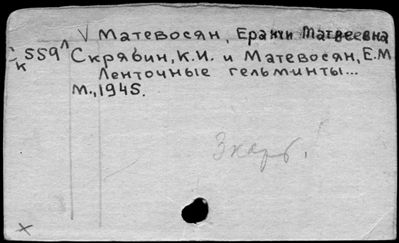 V Матевосян, Еранчи Матвеевна
К559 Скрябин, К.И. и Матевосян, Е.М
Ленточные гельминты...
М., 1945.
Экз